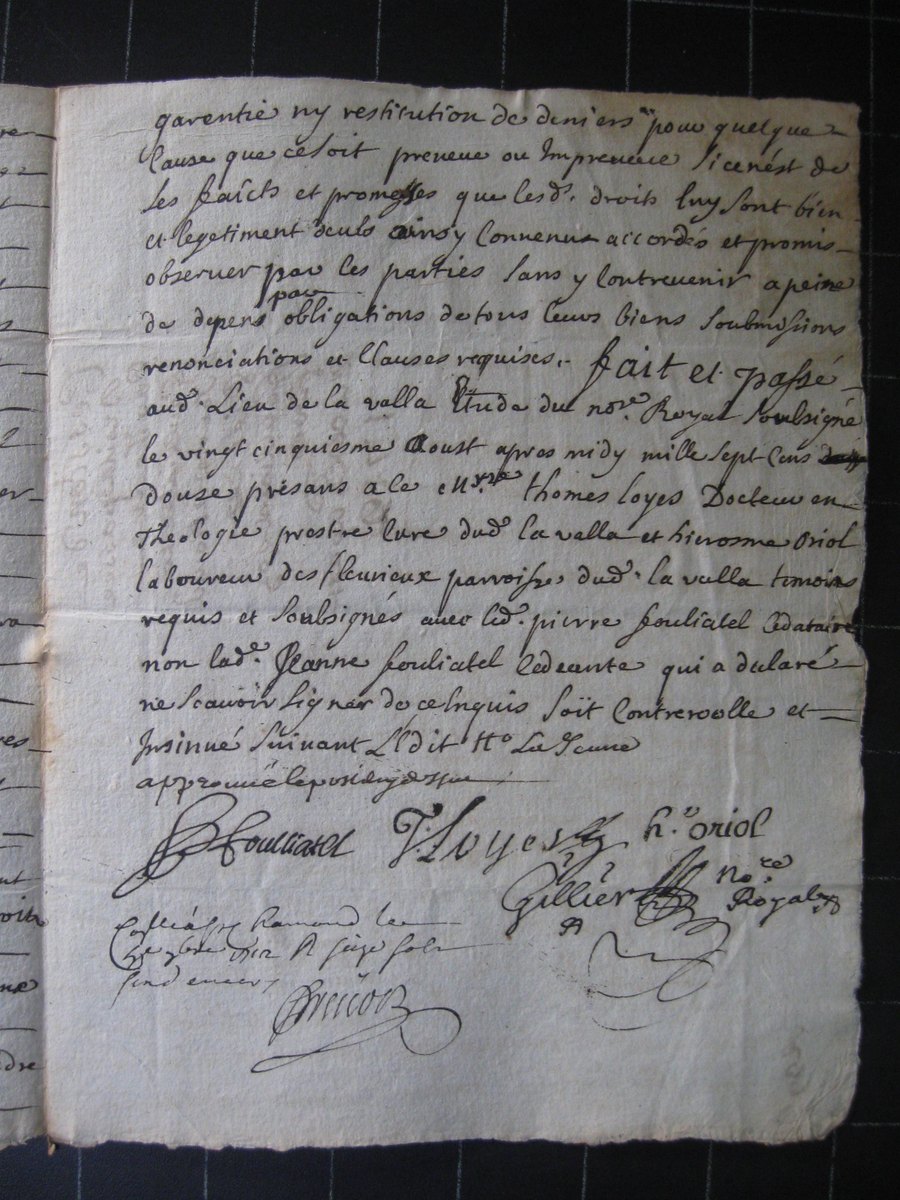 garentie ny restitution de deniers pour quelque
Cause que ce soit preveue ou Impreveue si ce nést de
ses faicts et promesses que lesd. droits luy sont bien
et legetiment deubs ainsy Convenus accordés et promis
observer par les parties sans y Contrevenir a peine
de depens par obligations de tous leurs biens soubmissions
renonciations et Clauses requises. fait et passé
aud. Lieu de la valla Etude du nore. Royal soubsigné
le vingt cinquiesme Aoust apres midy mille sept Cens
douse présans a ce thomes loyes Docteur en
Theologie prestre Cure dud. la valla et hierosme oriol
laboureur des fleurieux parroisse dud. la valla temoins
requis et soubsignés avec led. pierre fouliatel Cedataire
non lade. Jeanne fouliatel Cedeante qui a declaré
ne scavoir signer de ce Enquis soit Contreroolle et
Insinué suivant L'Edit
approuvé
fouliatel T. Loyes h. oriol
Gillier nore
Royal